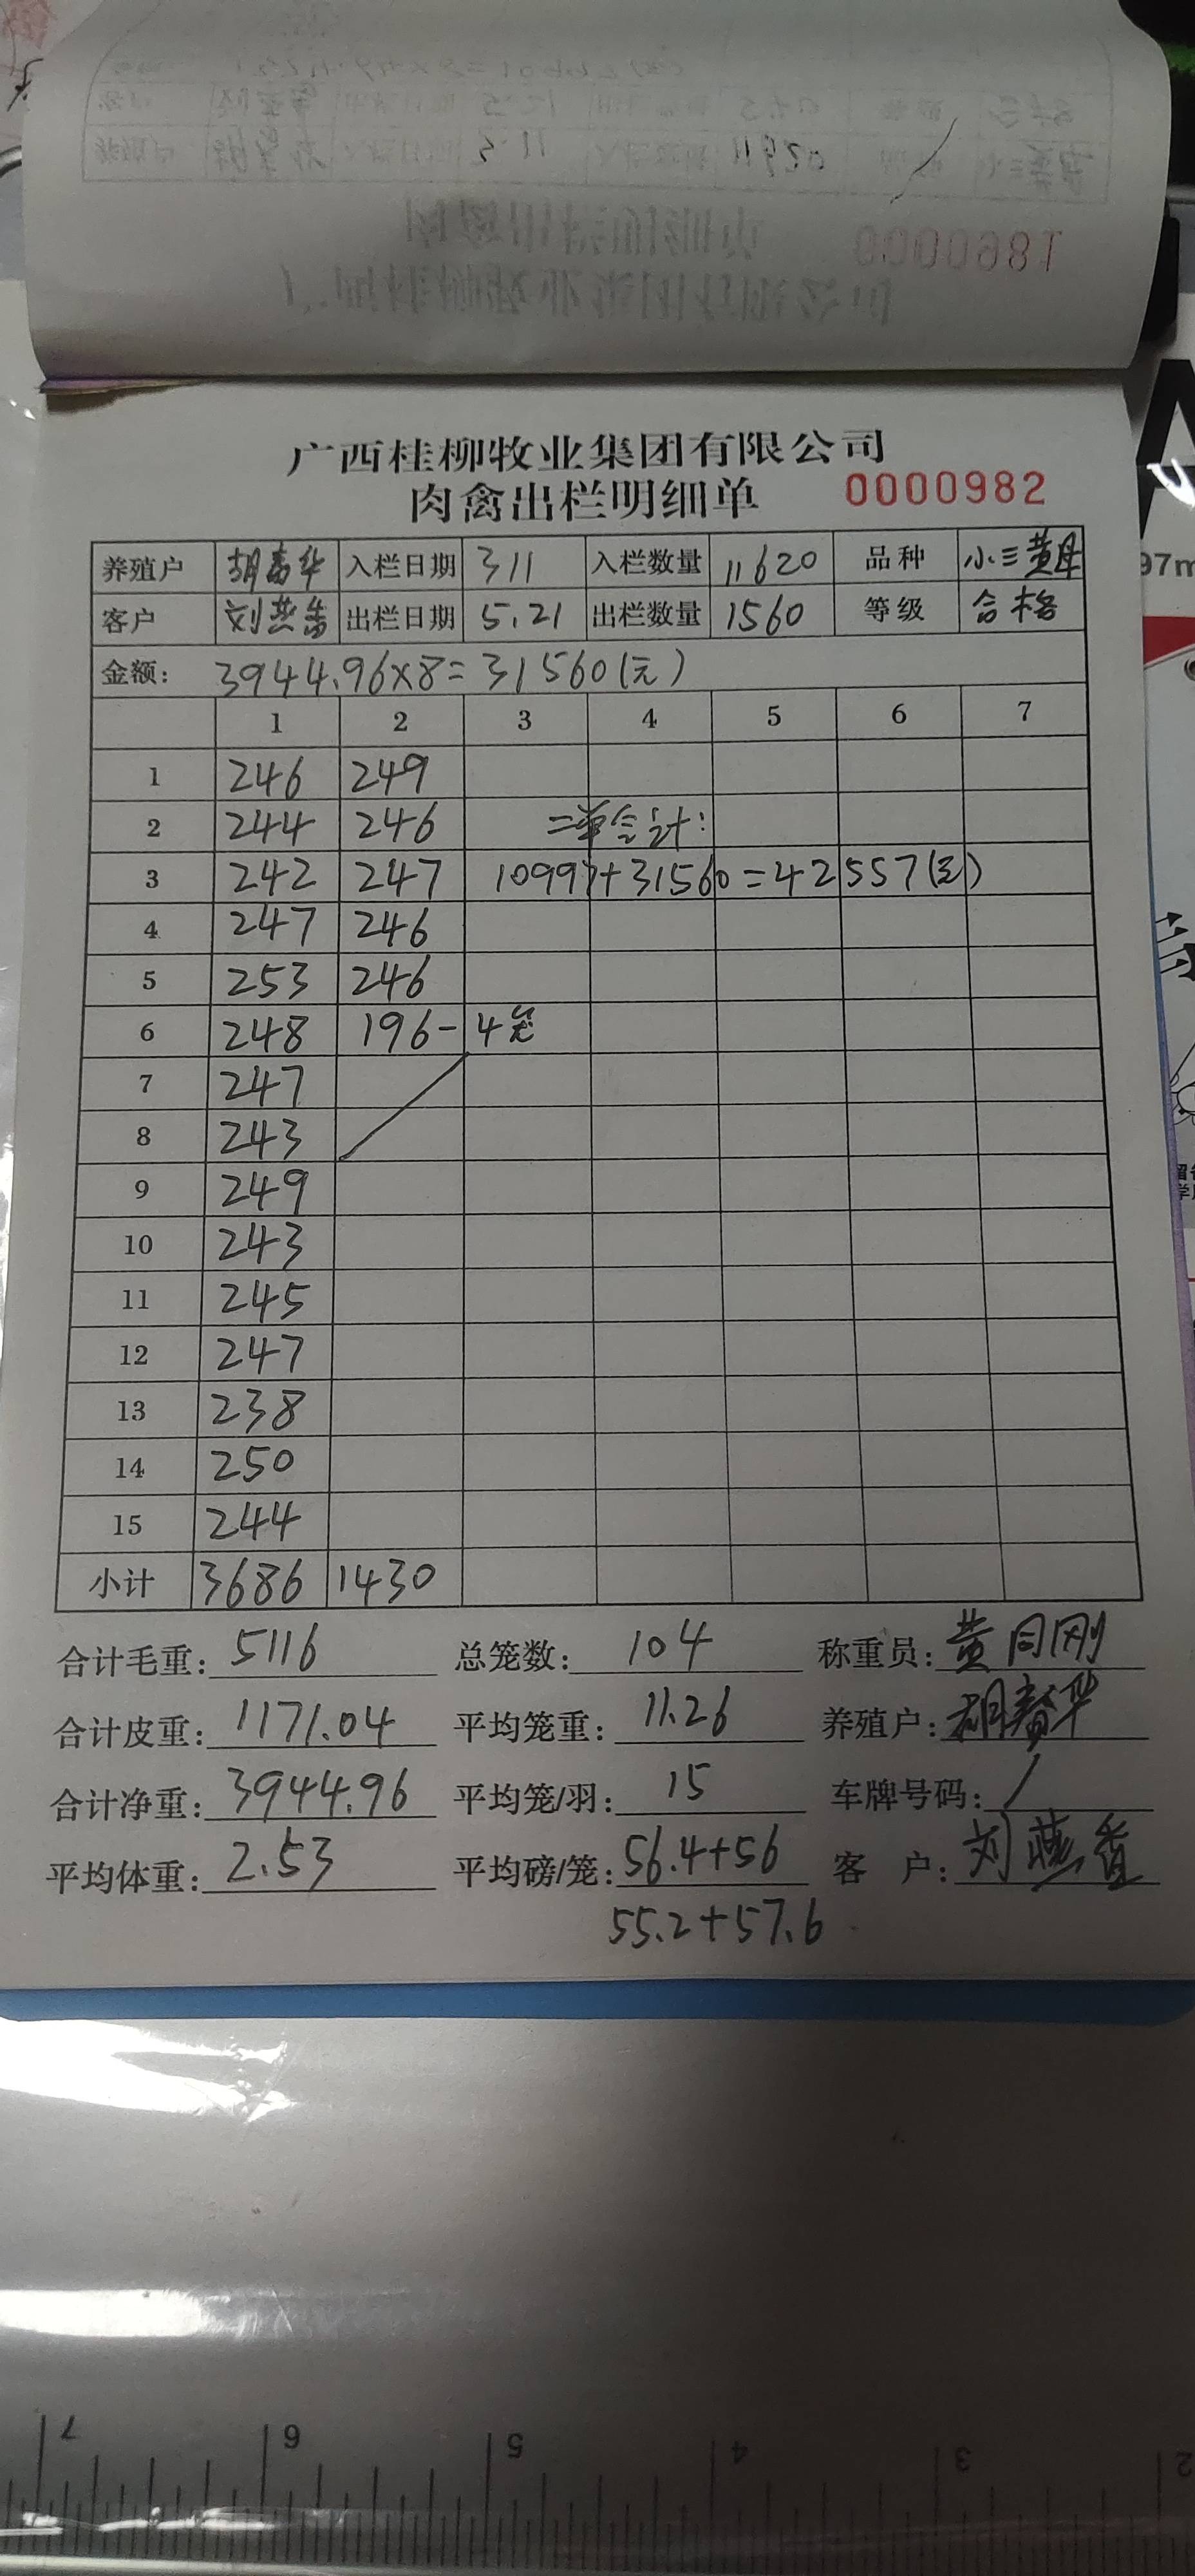 广西桂柳牧业集团有限公司
肉禽出栏明细单 0000982
养殖户 胡春华 入栏日期 3 11 入栏数量 11620 品种 小三黄母
客户 刘燕香 出栏日期 5.21 出栏数量 1560 等级 合格
金额: 3944.96×8=31560(元)
1 2 3 4 5 6 7
1 246 249
2 244 246 二单合计:
3 242 247 10997+31560=42557(元)
4 247 246
5 253 246
6 248 196-4笼
7 247
8 243
9 249
10 243
11 245
12 247
13 238
14 250
15 244
小计 3686 1430
合计毛重: 5116 总笼数: 104 称重员: 黄同刚
合计皮重: 1171.04 平均笼重: 11.26 养殖户: 胡春华
合计净重: 3944.96 平均笼/羽: 15 车牌号码: /
平均体重: 2.53 平均磅/笼: 56.4+56 客 户: 刘燕香
55.2+57.6
7 6 5 4 3 2